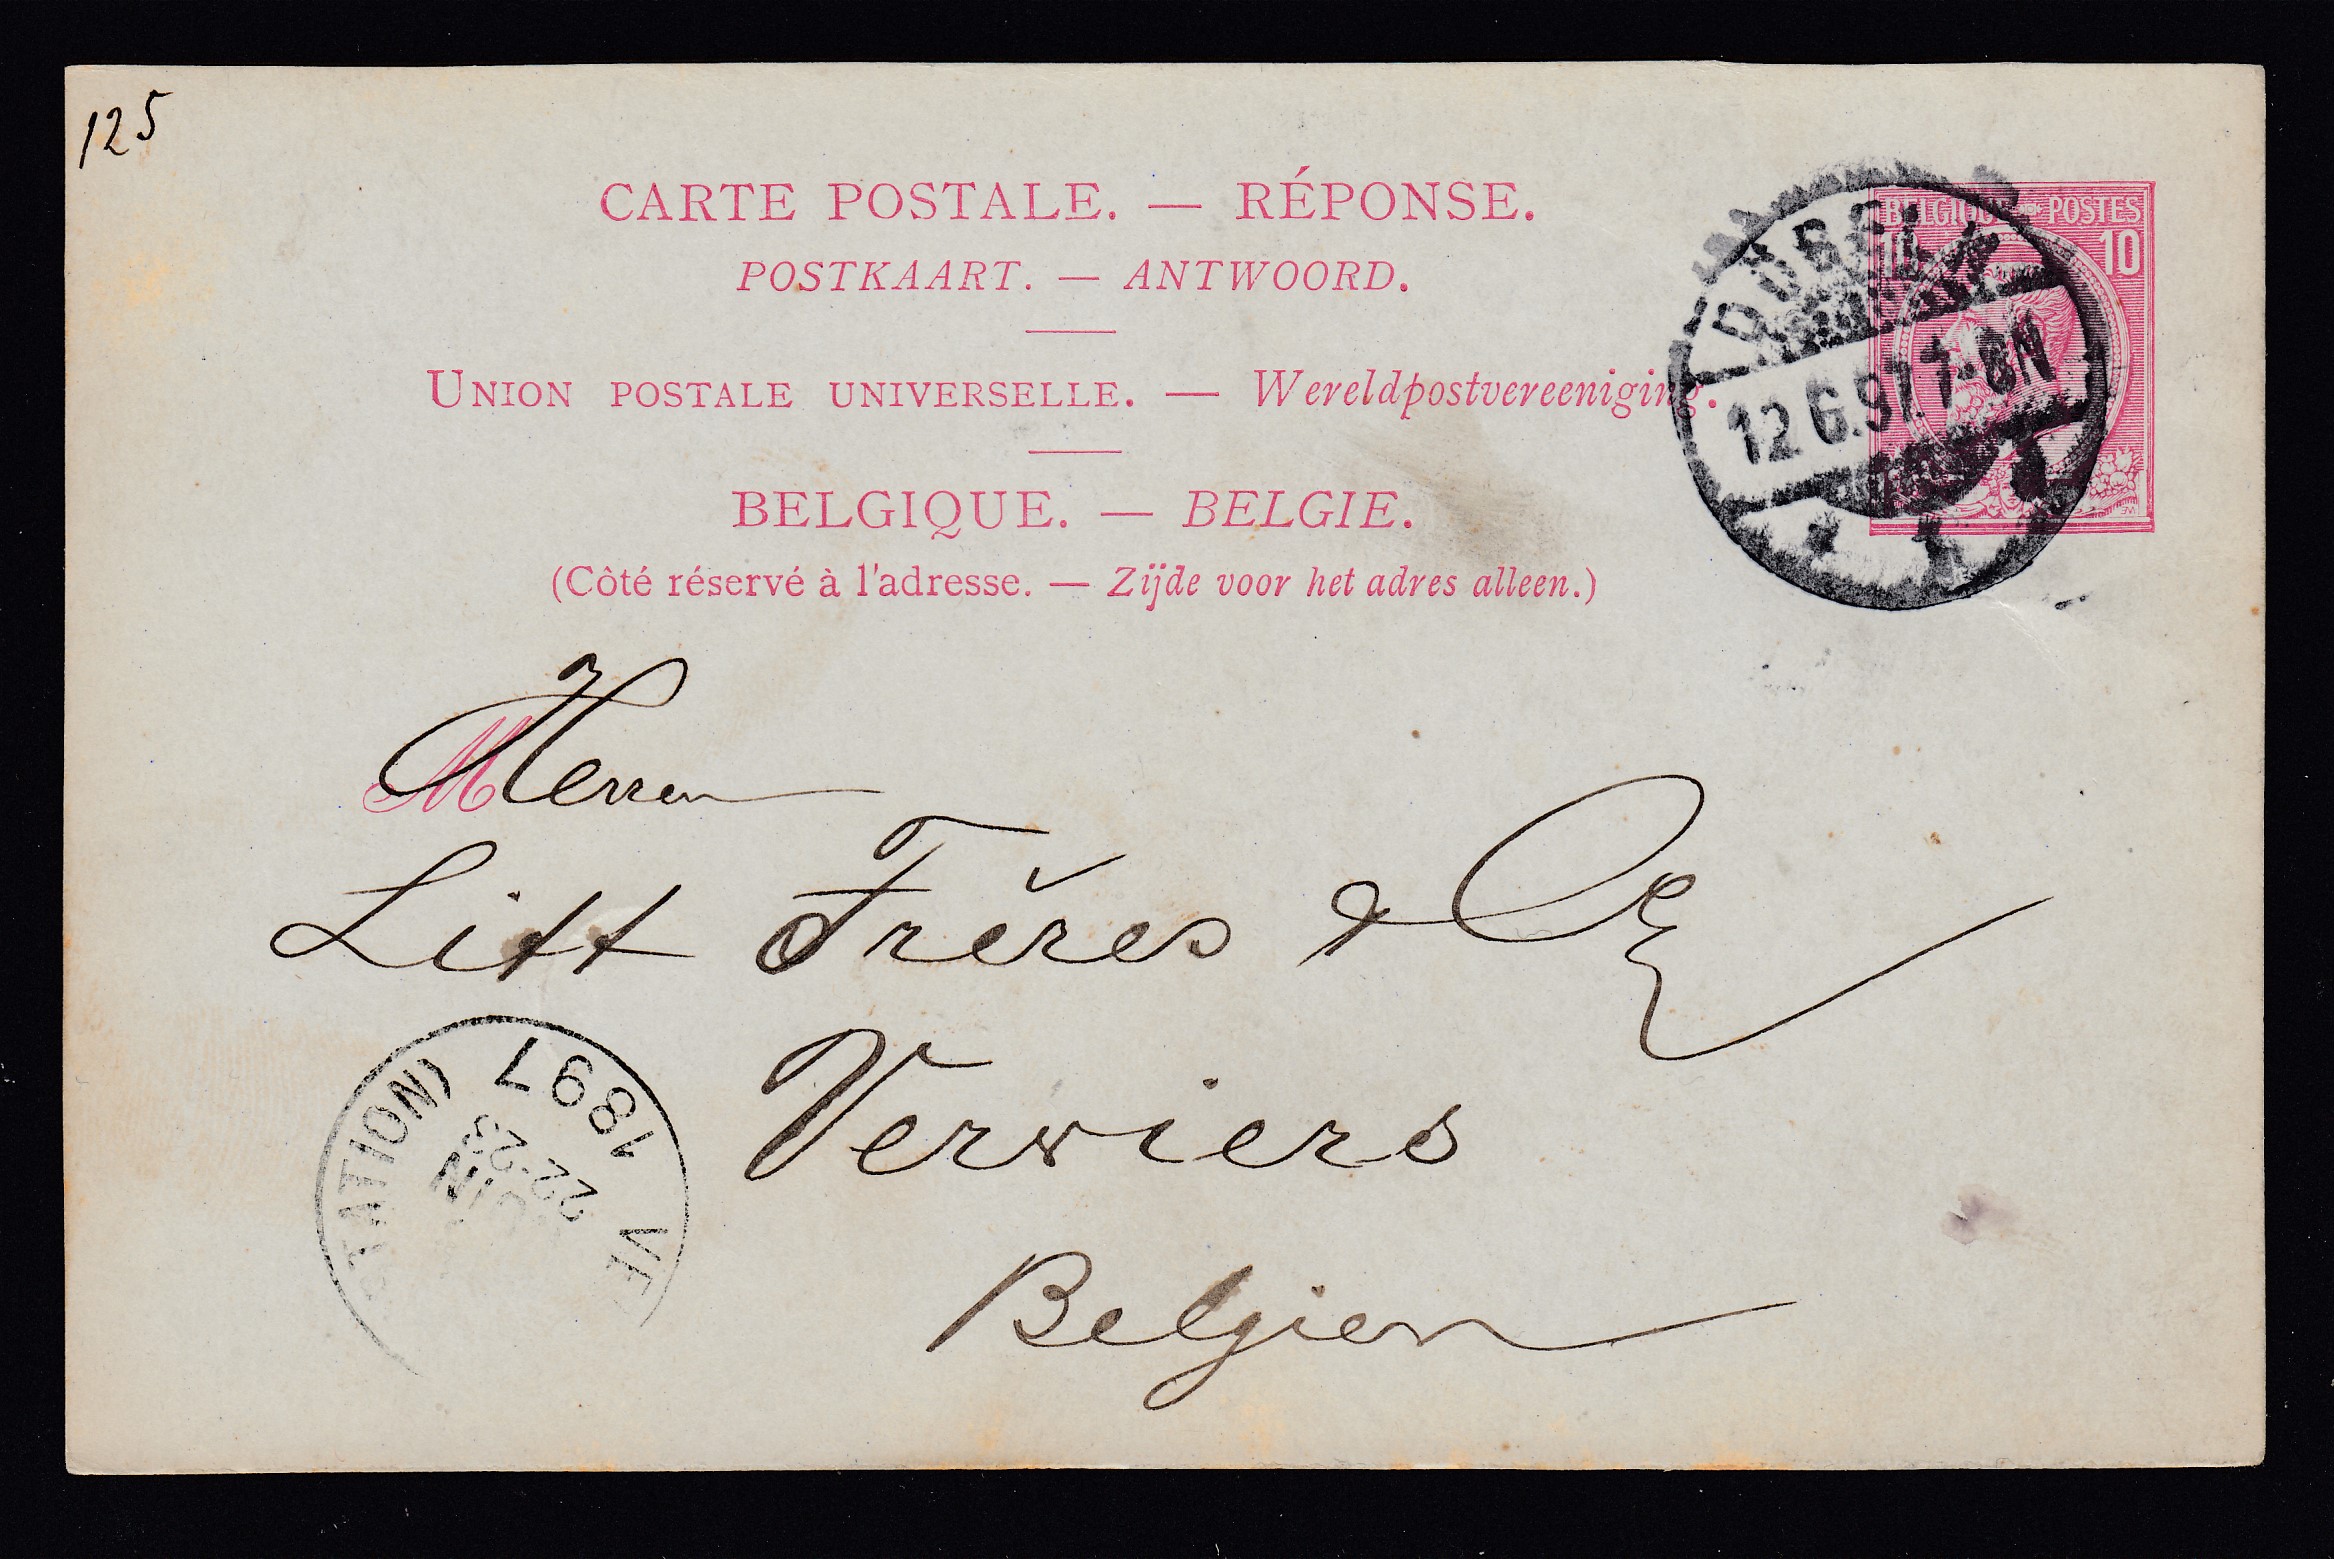 125
CARTE POSTALE. — RÉPONSE.
POSTKAART. — ANTWOORD.
UNION POSTALE UNIVERSELLE. — Wereldpostvereeniging.
BELGIQUE. — BELGIE.
(Côté réservé à l'adresse. — Zijde voor het adres alleen.)
BELGIQUE POSTES
10 10
12.6.97. 7-8N
M
Herren
Litt Fréres & Co
Verviers
Belgien
1897
22-23
JUIN
(STATION)